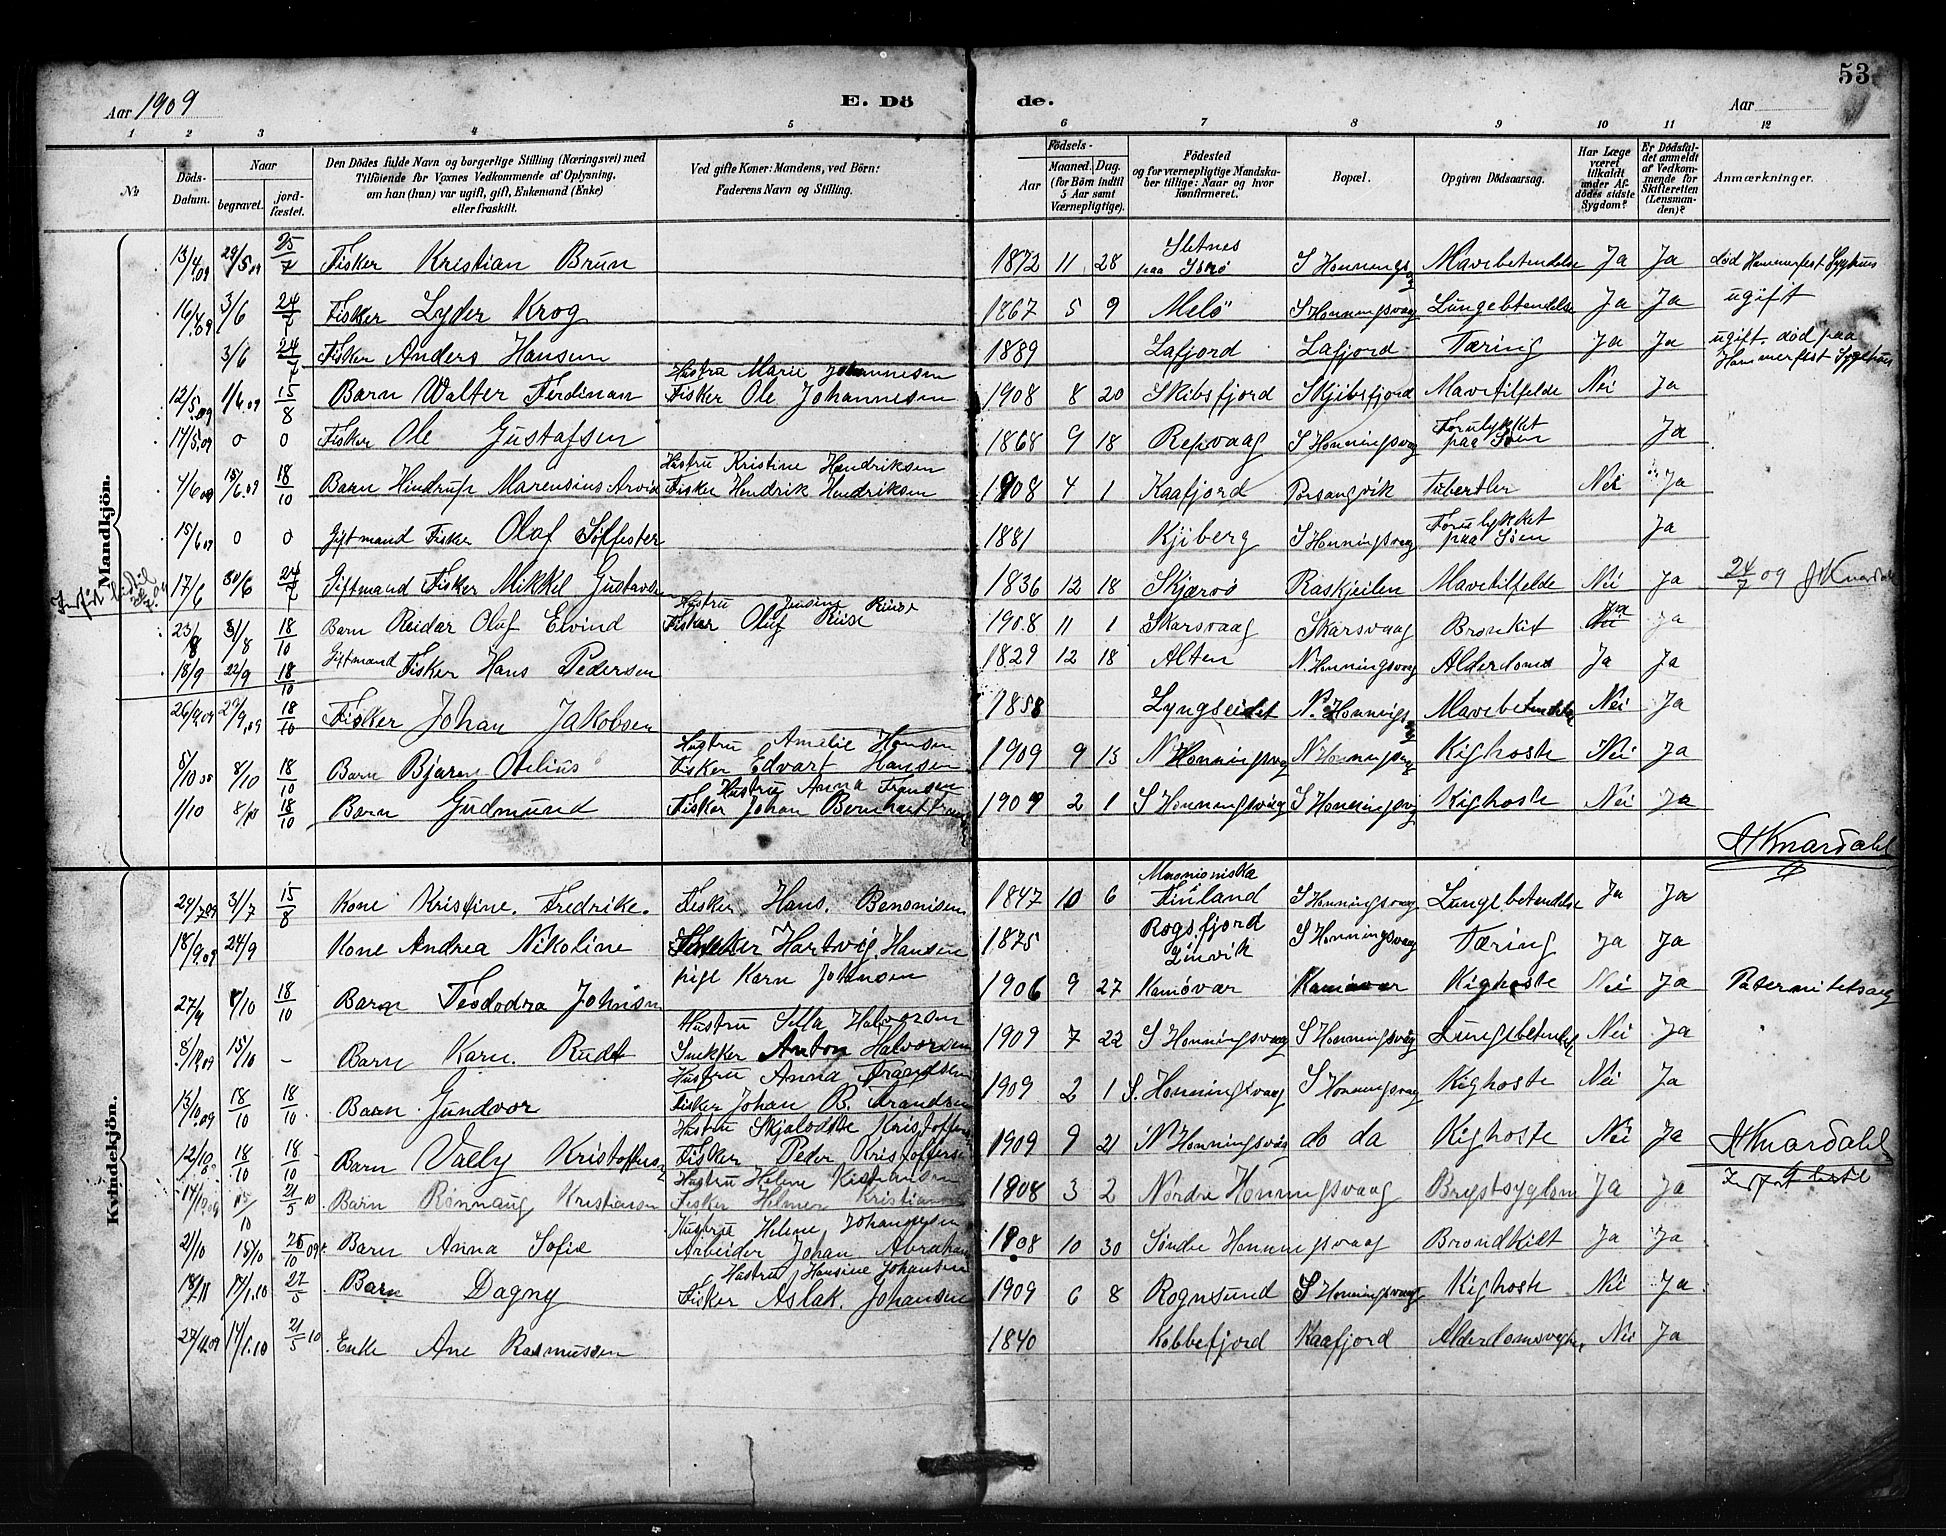 53
Aar 1909
E. Dö
de.
Aar
1 2 3 4 5 6 7 8 9 10 11 12
No
Döds-Datum.
Naar
begravet.
jord-fæstet.
Den Dödes fulde Navn og borgerlige Stilling (Næringsvei) med
Tilföiende for Voxnes Vedkommende af Oplysning,
om han (hun) var ugift, gift, Enkemand (Enke)
eller fraskilt.
Ved gifte Koner: Mandens, ved Börn:
Faderens Navn og Stilling.
Födsels-
Aar
Maaned. Dag.
(for Börn indtil
5 Aar samt
Værnepligtige).
Födested
og for værnepligtige Mandska-
ber tillige: Naar og hvor
konfirmeret.
Bopæl.
Opgiven Dödsaarsag.
Har Læge
været
tilkaldt
under Af-
dödes sidste
Sygdom?
Er Dödsfal-
det anmeldt
af Vedkom-
mende for
Skifteretten
(Lensman-
den)?
Anmærkninger.
Mandkjön.
13/4 09 29/5 09 25/7 Fisker Kristian Brun 1872 11 28 Sletnes paa Sörö S Honningsvg Mavebetendelse Ja Ja död Hammerfest Sygehus
16/4 09 3/6 24/7 Fisker Lyder Krog 1867 5 9 Melö S Honningsvaag Lungebetendelse Ja Ja ugift
3/6 24/7 Fisker Anders Hansen 1889 Lafjord Lafjord Tæring Ja Ja ugift. död paa Hammerfest Sygehus
Hustru Marie Johannesen
12/5 09 1/6 09 15/8 Barn Walter Ferdinan Fisker Ole Johannesen 1908 8 20 Skibsfjord Skjibsfjord Mavetilfelde Nei Ja
17/5 09 0 0 Fisker Ole Gustafsen 1868 9 18 Repvaag S Honningsvag Forulykket paa Söen Ja
Hustru Kristine Hendriksen
4/6 09 15/6 09 18/10 Barn Hindrup Marensius Arvid Fisker Hendrik Hendriksen 1908 4 1 Kaafjord Porsangvik Tubertler Nei Ja
15/6 09 0 0 Giftmand Fisker Olaf Söffester 1881 Kjiberg S Honningsvag Forulykket paa Söen Ja
17/6 30/6 24/7 Giftmand Fisker Mikkel Gustavsen 1836 12 18 Skjærvö Raskjeilen Mavetilfelde Nei Ja 24/7 09 J Knardahl
Hustru Jensine Riise
23/8 31/8 18/10 Barn Reidar Olaf Eivind Fisker Oluf Riise 1908 11 1 Skarsvaag Skarsvaag Bronkit Ja Ja
18/9 22/9 18/10 Giftmand Fisker Hans Pedersen 1829 12 18 Alten N. Honningsvaag Alderdoms Ja Ja
26/9 09 29/9 09 18/10 Fisker Johan Jakobsen 1858 Lyngseidet N. Honnigsvg Mavebetendelse Nei Ja
Hustru Amelie Hansen
5/10 8/10 18/10 Barn Bjarne Otelius Fisker Edvart Hansen 1909 9 15 N Honningsvag N Honningsvag Kighoste Nei Ja
Hustru Anna Fransen
1/10 8/10 18/10 Barn Gudmund Fisker Johan Bernhart 1909 2 1 S Honningsvaag S Honningsvg Kighoste Nei Ja
J Knardahl
Kvindekjön.
24/7 09 31/7 15/8 Kone Kristine. Fredrike. Fisker Hans. Benonisen 1847 10 6 Finland S Honningsvaag Lungebetendelse Ja Ja
18/9 09 24/9 Kone Andrea Nikoline Hartvig. Hansen 1875 Rogsfjord S Honningsvaag Tæring Ja Ja
pige Karn Johansen
27/9 18/10 Barn Teododra Johnsen 1906 9 27 Kamövar Kamövar Kighoste Nei Ja Paternitetsag
Hustru Sella Halvorsen
8/10 09 15/10 – Barn Karn. Rudt Snekker Anton Halvorsen 1909 7 22 S Honningsvaag S Honningsvåg Lungebetendelse Nei Ja
Hustru Anna Frandsen
13/10 09 18/10 18/10 Barn Gundvor Fisker Johan B. Frandsen 1909 2 1 S. Honningsvaag S Honningsvag Kighoste Nei Ja
Hustru Skjalodtte Kristoffersen
12/10 18/10 18/10 Barn Vally Kristoffersen Fisker Peder Kristoffersen 1909 9 21 N Honningsvåg do da Kighoste Nei Ja J Knardahl
Hustru Helene Kistiansen
14/10 09 15/10 21/5 10 Barn Rønnaug Kristiansen Fisker Helmer Kristiansen 1908 3 2 Nordre Honningsvaag Brystsygdom Ja Ja
Hustru Helene Johannesen
2/10 15/10 25/10 09 Barn Anna Sofie Arbeider Johan Abraham 1908 10 30 Söndre Honningsvaag Brondkidt Ja Ja
Hustru Hansine Johansen
18/11 17/1.10 27/5 Barn Dagny Fisker Aslak. Johansen 1909 6 8 Rognsund S Honningsvaag Kighoste Nei Ja
27/11.09 17/1.10 21/5 10 Enke Ane Rasmussen 1840 Kobbefjord Kaafjord Nei Ja